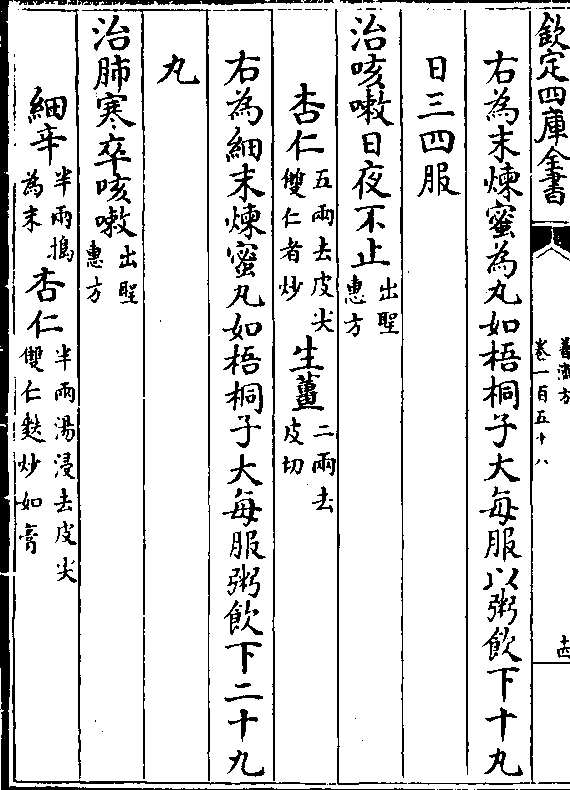 欽定四庫全書
普濟方
卷一百五十八
十四
右為末煉蜜為丸如梧桐子大每服以粥飲下十丸
日三四服
治咳嗽日夜不止出聖惠方
杏仁五兩去皮尖雙仁者炒生薑二兩去皮切
右為細末煉蜜丸如梧桐子大每服粥飲下二十九
丸
治肺寒卒咳嗽出聖惠方
細辛半兩搗為末杏仁半兩湯浸去皮尖雙仁麩炒如膏